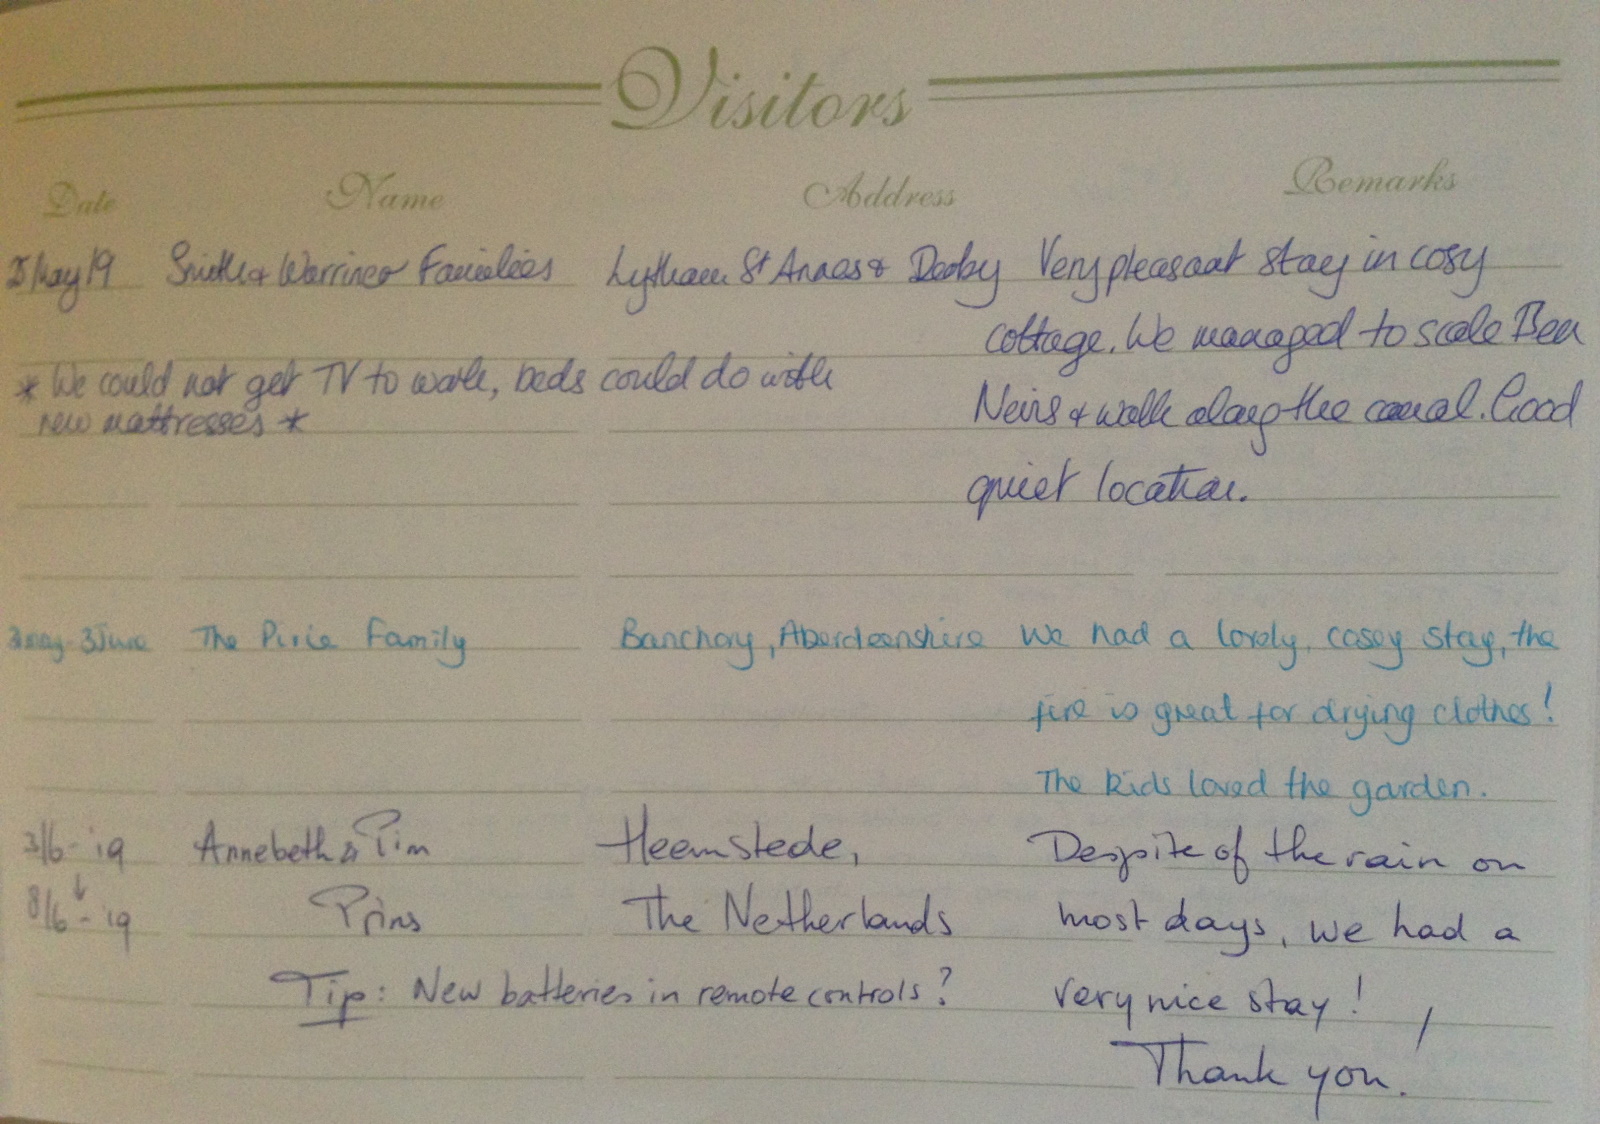 Visitors
Date Name Address Remarks
May 19 Smith & Warriner Families Lytham St Annes & Derby Very pleasant stay in cosy
cottage. We managed to scale Ben
* We could not get TV to work, beds could do with
new mattresses *
Nevis & walk along the canal. Good
quiet location.
3June The Pirie Family Banchory, Aberdeenshire We had a lovely, cosey stay, the
fire is great for drying clothes!
The kids loved the garden.
3/6-'19 Annebeth & Pim Heemstede, Despite of the rain on
8/6-'19 Prins The Netherlands most days, we had a
Tip: New batteries in remote controls? very nice stay!
Thank you!